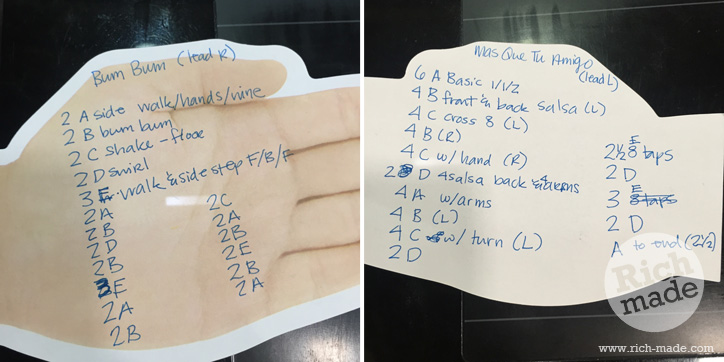 Bum Bum (lead R)
2 A side walk/hands/nine
2 B bum bum
2 C shake - floor
2 D swirl
3 E walk & side step F/B/F
2A
2B
2D
2B
3E
2A
2B
2C
2A
2B
2E
2B
2A
Mas Que Tu Amigo
(lead L)
6 A Basic 1/1/2
4 B front & back salsa (L)
4 C cross 8 (L)
4 B (R)
4 C w/ hand (R)
2 D 4 salsa back & 4 arms
4 A w/arms
4 B (L)
4 C w/ turn (L)
2 D
2 1/2 E 8 taps
2 D
3 E 8 taps
2 D
A to end (2 1/2)
Rich
made
www.rich-made.com